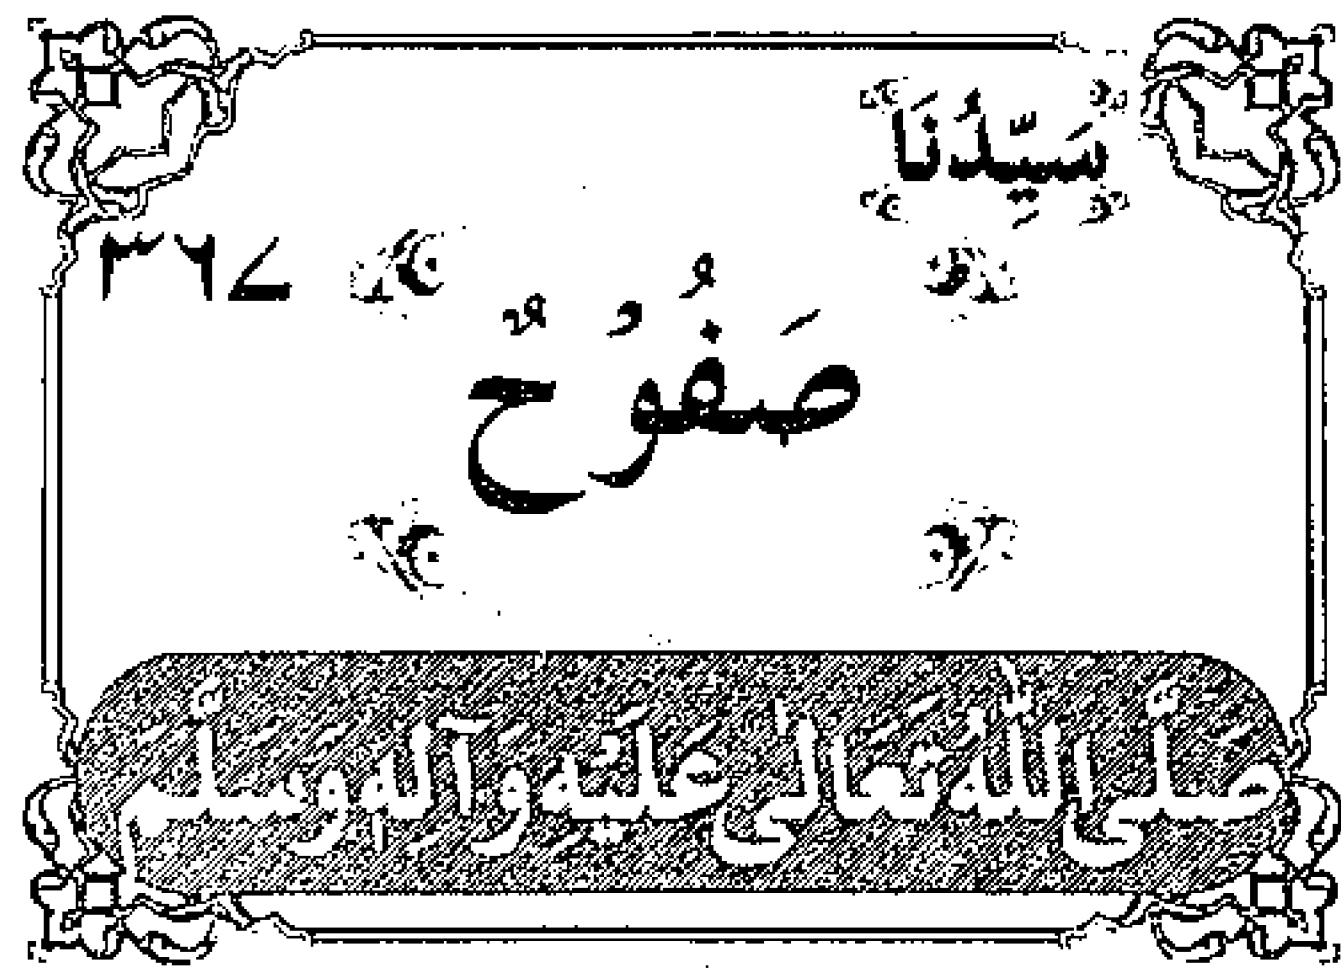 سَيِّدُنَا
۳۶۷
صَفُوْحٌ
صَلَّى اللّٰهُ تَعَالٰى عَلَيْهِ وَآلِهٖ وَسَلَّم